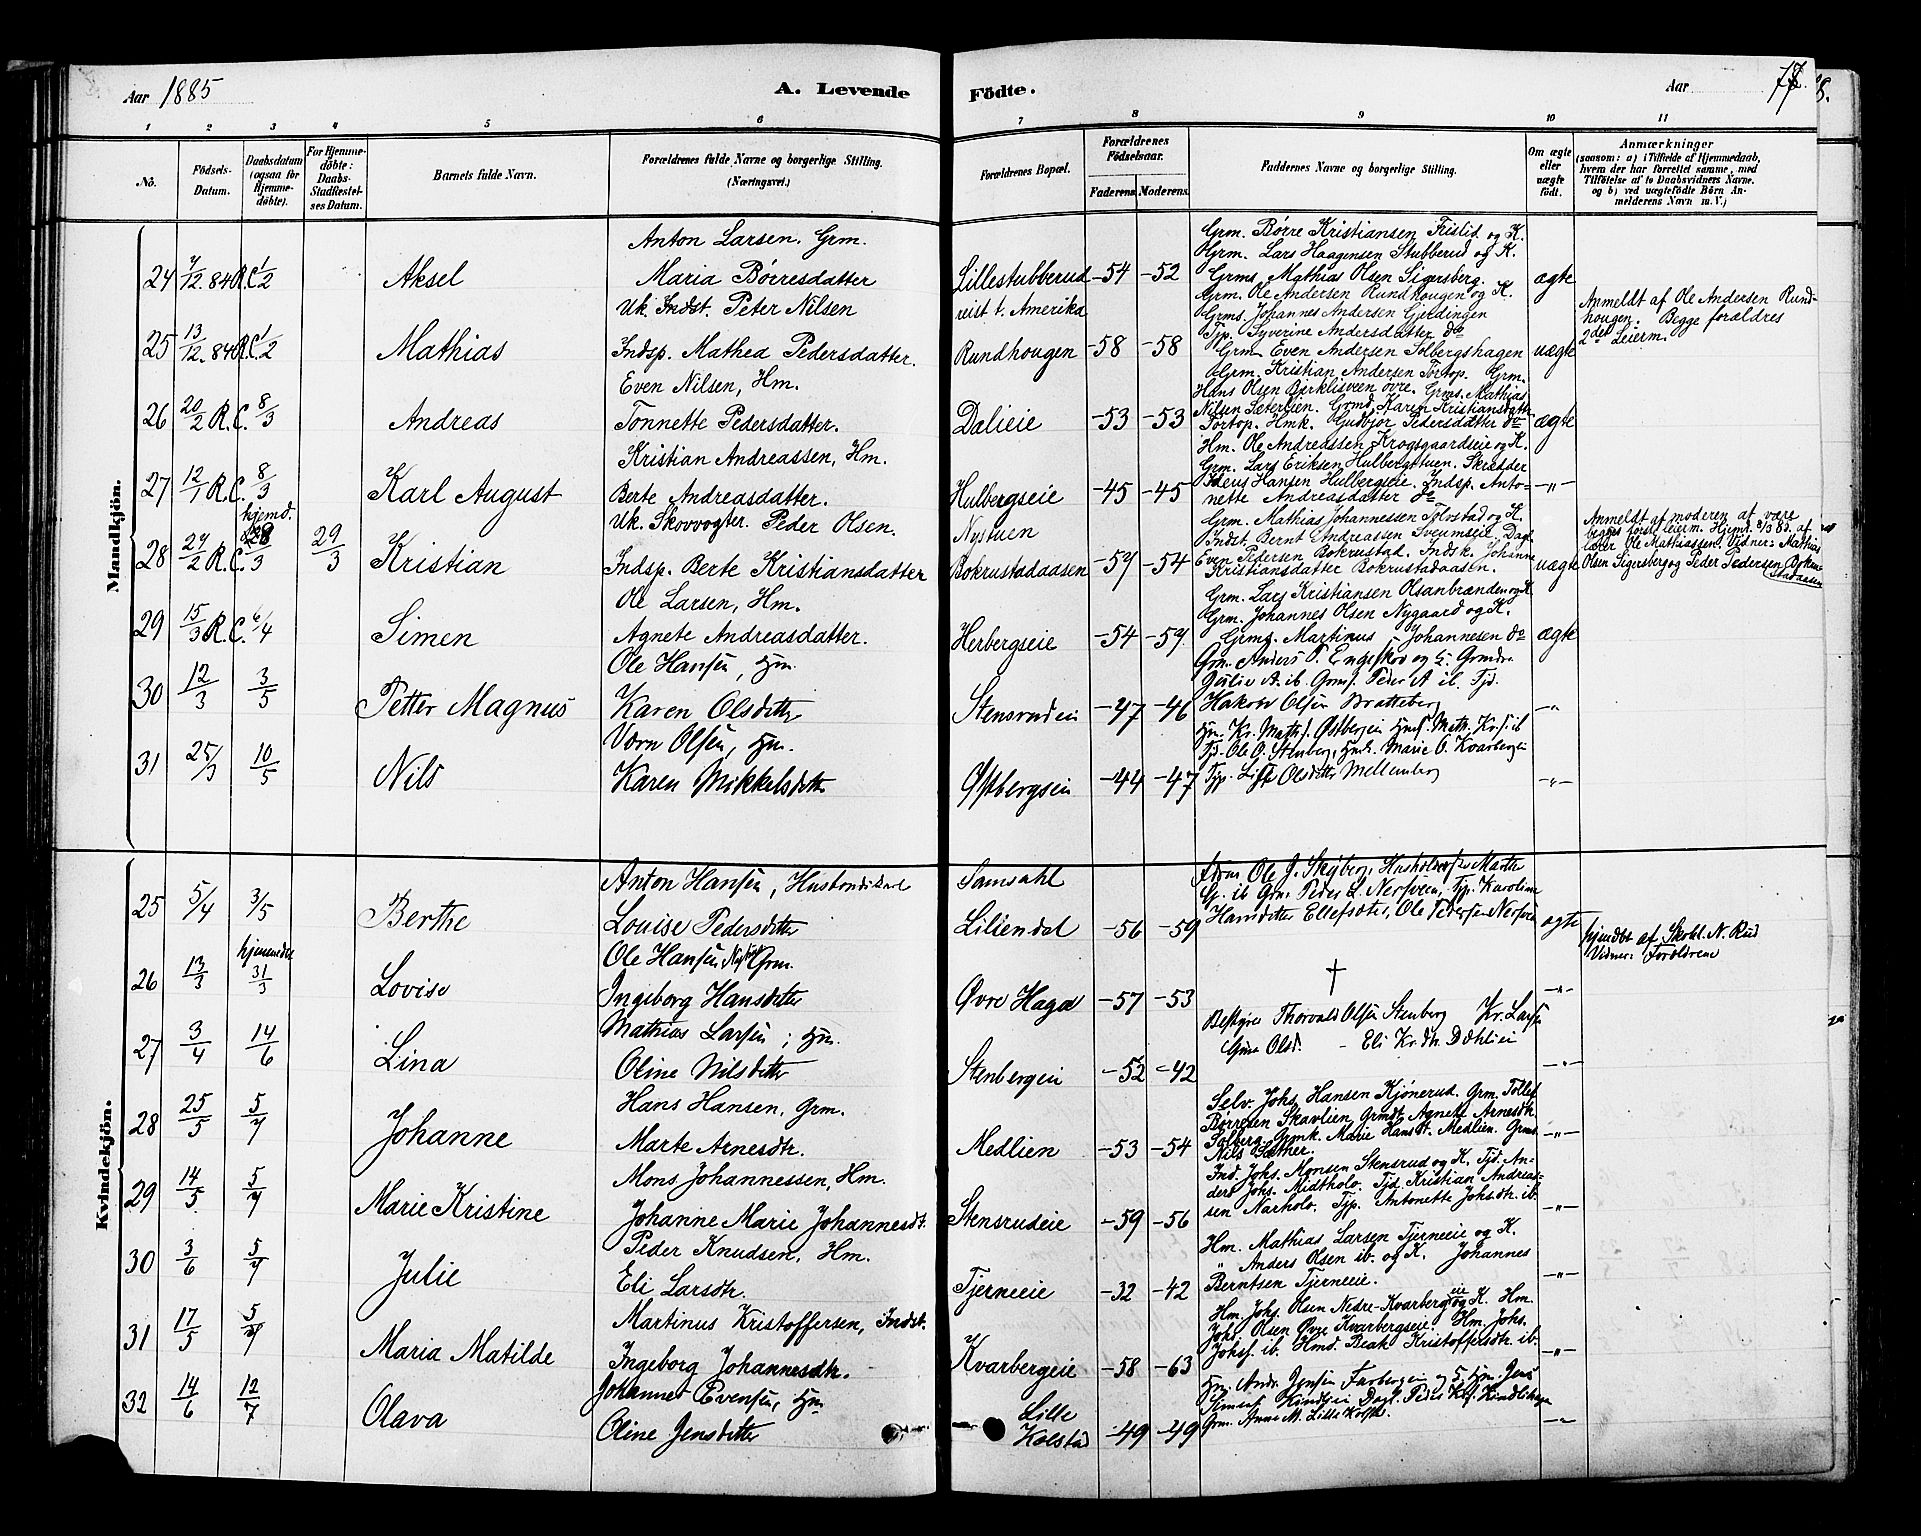 Aar 1885
A. Levende Födte.
Aar 77.
1 2 3 4 5 6 7 8 9 10 11
No. Födsels-Datum. Daabsdatum (ogsaa for Hjemmedöbte). For Hjemmedöbte: Daabs-Stadfæstelses Datum. Barnets fulde Navn. Forældrenes fulde Navne og borgerlige Stilling. (Næringsvei.) Forældrenes Bopæl. Forældrenes Födselsaar. Faderens. Moderens. Faddernes Navne og borgerlige Stilling. Om ægte eller uægte födt. Anmærkninger (saasom: a) i Tilfælde af Hjemmedaab, hvem der har forrettet samme, med Tilföielse af to Daabsvidners Navne, og b) ved uægtefödte Börn Anmelderens Navn m. V.)
Mandkjön.
24 7/12 84 R.C. 1/2 Aksel
Anton Larsen, Grm.
Maria Börresdatter
Lillestubberud -54 -52
Grm. Börre Kristiansen Fristid og K.
Grm. Lars Haagensen Stubberud og K.
Grms. Mathias Olsen Sigersberg.
ægte
25 13/12 84 R.C. 1/2 Mathias
Uk. Indst. Peter Nilsen
Indsp. Mathea Pedersdatter.
reist t. Amerika
Rundhougen -58 -58
Grm. Ole Andersen Rundhougen og K.
Grms. Johannes Andersen Gjeldingen
Tjp. Syverine Andersdatter do
uægte
Anmeldt af Ole Andersen Rundhougen. Begge forældres
2det Leierm.
26 20/2 R.C. 8/3 Andreas
Even Nilsen, Hm.
Tonnette Pedersdatter.
Dalieie -53 -53
Grm. Even Andersen Solbergshagen
Grm. Kristian Andersen Tortop. Grm.
Hans Olsen Birklisveen övre. Grms. Mathias
Nilsen Seterlien. Grmd. Karen Kristiansdatter
Tortop. Hmk. Gudbjor Pedersdatter do
ægte
27 12/1 R.C. 8/3 Karl August
Kristian Andreassen, Hm.
Berte Andreasdatter.
Hulbergseie -45 -45
Hm. Ole Andreassen Krogsgaardseie og K.
Grm. Lars Eriksen Hulbergstuen. Skrædder
Hansen Hulbergseie. Indsp. Antonette Andreasdatter do
-"-
28 24/2 R.C. hjemd. 28/3 29/3 Kristian
Uk. Skovvogter Peder Olsen.
Indsp. Berte Kristiansdatter
Nystuen
Bokrustadaasen -59 -54
Grm. Mathias Johannessen Tolostad og K.
Indst. Bernt Andreassen Sveumseie. Dagl.
Even Pedersen Bokrustad. Indsk. Johanne
Kristiansdatter Bokrustadaasen.
uægte
Anmeldt af moderen at være
begges förste leierm. Hjemd. 8/3 85. af
lærer Ole Mathiassen. Vidner: Mathias
Olsen Sigersberg og Peder Pedersen Bokrustadaasen
29 15/3 R.C. 6/4 Simen
Ole Larsen, Hm.
Agnete Andreasdatter.
Herbergseie -54 -59
Grm. Lars Kristiansen Olsanbrænden og K.
Grm. Johannes Olsen Nygaard og K.
Grms. Martinus Johannesen do
ægte
30 12/3 3/5 Petter Magnus
Ole Hansen, Hm.
Karen Olsdatter
Stensrudei -47 -46
Grm. Anders P. Engeskov og K. Grmdr.
Julie A. ib. Grms. Peder A. ib. Tjd.
Hakon Olsen Bratteberg
-"-
31 25/3 10/5 Nils
Vorn Olsen, Hm.
Karen Mikkelsdatter
Østbergsei -44 -47
Hm. Kr. Maths. Østbergsei Hms. Math. Kr. s. ib
Tjd. Ole O. Stenberg, Hmk. Marie O. Kvarbergei
Tjp. Lise Olsdatter Mellemberg
-"-
Kvindekjön.
25 5/4 3/5 Berthe
Anton Hansen, Husbondskarl
Louise Pedersdatter
Samdahl
Liliendal -56 -59
Ole J. Skyberg, Marthe
G. ib Grm. Peder L. Nersveen, Tjp. Karoline
Hansdatter Ellefsæter, Ole Pedersen Nersveen
ægte
26 13/3 hjemmedøbt 31/3 Lovise
Ole Hansen Grm.
Ingeborg Hansdatter
Øvre Haga -57 -53
†
-"-
hjemdbt af Skoll. N. Rud
Vidner: Forældrene
27 3/4 14/6 Lina
Mathias Larsen, Hm.
Oline Nilsdatter
Stenbergei -52 -42
Bestyrer Thorvald Olsen Stenberg Kr. Larsen
Gina Olsd. - Eli Kr. dtr. Dæhliei
-"-
28 25/5 5/7 Johanne
Hans Hansen, Grm.
Marte Arnesdtr.
Medlien -53 -54
Selv. Johs. Hansen Kjönerud. Grm. Tollef
Börresen Skavlien. Grmdt. Agnete Arnesdtr.
Solberg. Grmk. Marie Hansdt. Medlien. Grms.
Nils Sætner.
-"-
29 14/5 5/7 Marie Kristine
Mons Johannessen, Hm.
Johanne Marie Johannesdt.
Stensrudeie -59 -56
Ind. Johs. Monsen Stensrud og K. Tjd. Anders Johs. Midtholo. Tjd. Kristian Andreassen Narholo. Tjp. Antonette Johsdtr. ib.
-"-
30 3/6 5/7 Julie
Peder Knudsen, Hm.
Eli Larsdtr.
Tjerneeie -32 -42
Hm. Mathias Larsen Tjerneeie og K.
" Anders Olsen ib. og K. Johannes
Berntsen Tjerneeie.
-"-
31 17/5 5/7 Maria Matilde
Martinus Kristoffersen, Indst.
Ingeborg Johannesdtr.
Kvarbergeie -58 -63
Hm. Johs. Olsen Nedre-Kvarbergeie og K. Hm.
Johs. Olsen Øvre Kvarbergseie. Hm. Johs.
Johss. ib. Hmd. Beate Kristoffersdtr. ib.
-"-
32 14/6 12/7 Olava
Johannes Evensen, Hm
Oline Jensdatter
Lille Kolstad -49 -49
Hm. Andr. Jensen Farbergei og K. Hm. Jens
Simens. Kindliei Dagl. Peder Kindlihagen
Grm. Anne M. Lille Kolstad.
-"-